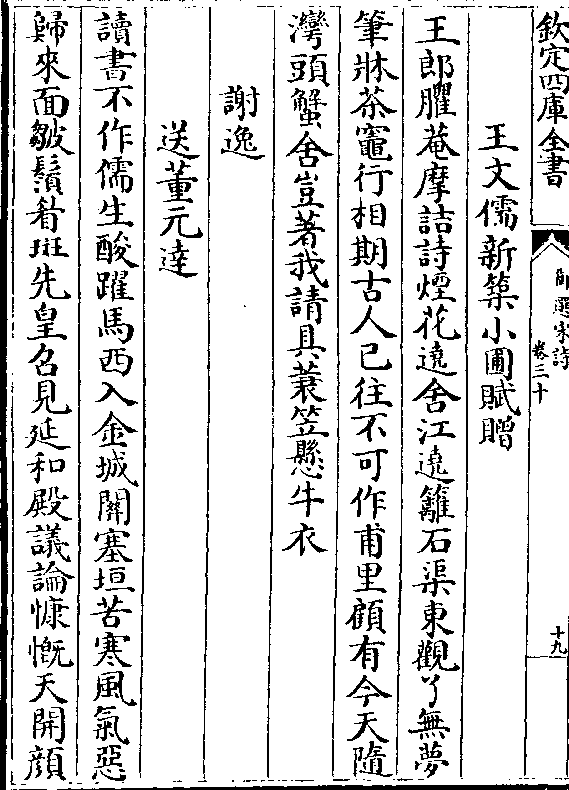 欽定四庫全書
御選宋詩
卷三十
十九
王文儒新築小圃賦贈
王郎臞菴摩詰詩煙花遶舍江遶籬石渠東觀了無夢
筆牀茶竈行相期古人已往不可作甫里顧有今天隨
灣頭蟹舍豈著我請具蓑笠懸牛衣
謝逸
送董元達
讀書不作儒生酸躍馬西入金城關塞垣苦寒風氣惡
歸來面皺鬚㸔斑先皇召見延和殿議論慷慨天開顔